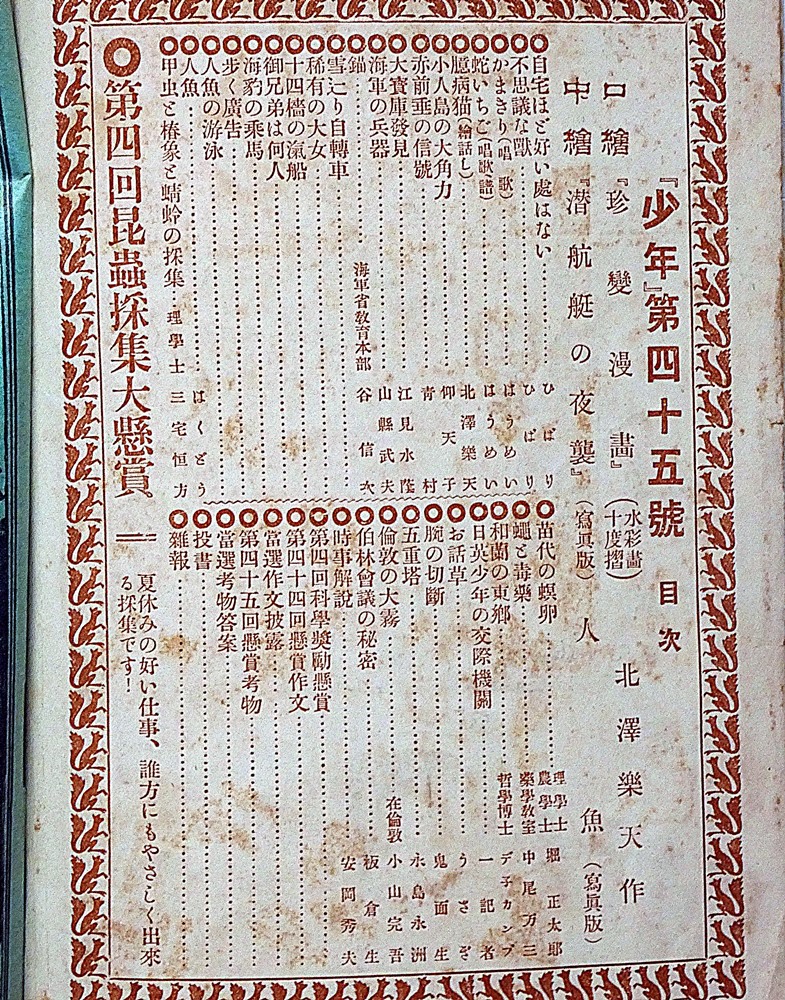 『少年』第四十五號 目次
口繪『珍變漫畫』(水彩畫 十度摺) 北澤樂天作
中繪『潜航艇の夜襲』(寫眞版) 人魚(寫眞版)
◎自宅ほど好い處はない……ひばり
◎不思議な獸……ひばり
◎かまきり(唱歌)……はうめい
◎蛇いちご(唱歌譜)……はうめい
◎臆病猫(繪話し)……北澤樂天
◎小人島の大角力……仰天子
◎赤前垂の信號……青村
◎大寶庫發見……江見水蔭
◎海軍の兵器……山縣武夫
◎錨……海軍省教育本部 谷信次
◎雪辷り自轉車……
◎稀有の大女……
◎十四檣の汽船……
◎御兄弟は何人……
◎海豹の乘馬……
◎歩く廣告……
◎人魚の游泳……
◎人魚……はくどう
◎甲虫と椿象と蜻蛉の採集…理學士 三宅恒方
◎苗代の螟卵……理學士 農學士 堀正太郎
◎蠅と毒藥……藥學教室 中尾万三
◎和蘭の東郷……哲學博士 デ子カンプ
◎日英少年の交際機關……一記者
◎お話草……うさぎ
◎腕の切斷……鬼面生
◎五重塔……永島永洲
◎倫敦の大霧……在倫敦 小山完吾
◎伯林會議の秘密……板倉生
◎時事解説……安岡秀夫
◎第四回科學奬勵懸賞……
◎第四十四回懸賞作文……
◎當選作文披露……
◎第四十五回懸賞考物……
◎當選考物答案……
◎投書……
◎雜報……
◎第四回昆蟲採集大懸賞
夏休みの好い仕事、誰方にもやさしく出來
る採集です!